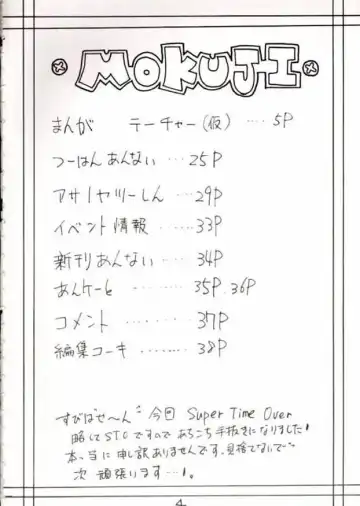 MOKUJI
まんが テーチャー(仮) ‥‥ 5P
つーはんあんない ‥‥ 25P
アサーヤツーしん ‥‥ 29P
イベント情報 ‥‥‥ 33P
新刊あんない ‥‥‥ 34P
あんケーと ‥‥‥ 35P.36P
コメント ‥‥‥‥ 37P
編集コーキ ‥‥‥‥ 38P
すびばせ〜ん 今回 Super Time Over
略してSTOですので あちこち手抜きになりました!
本当に申し訳ありませんです。見捨てないで〜
次 頑張ります…!。
4